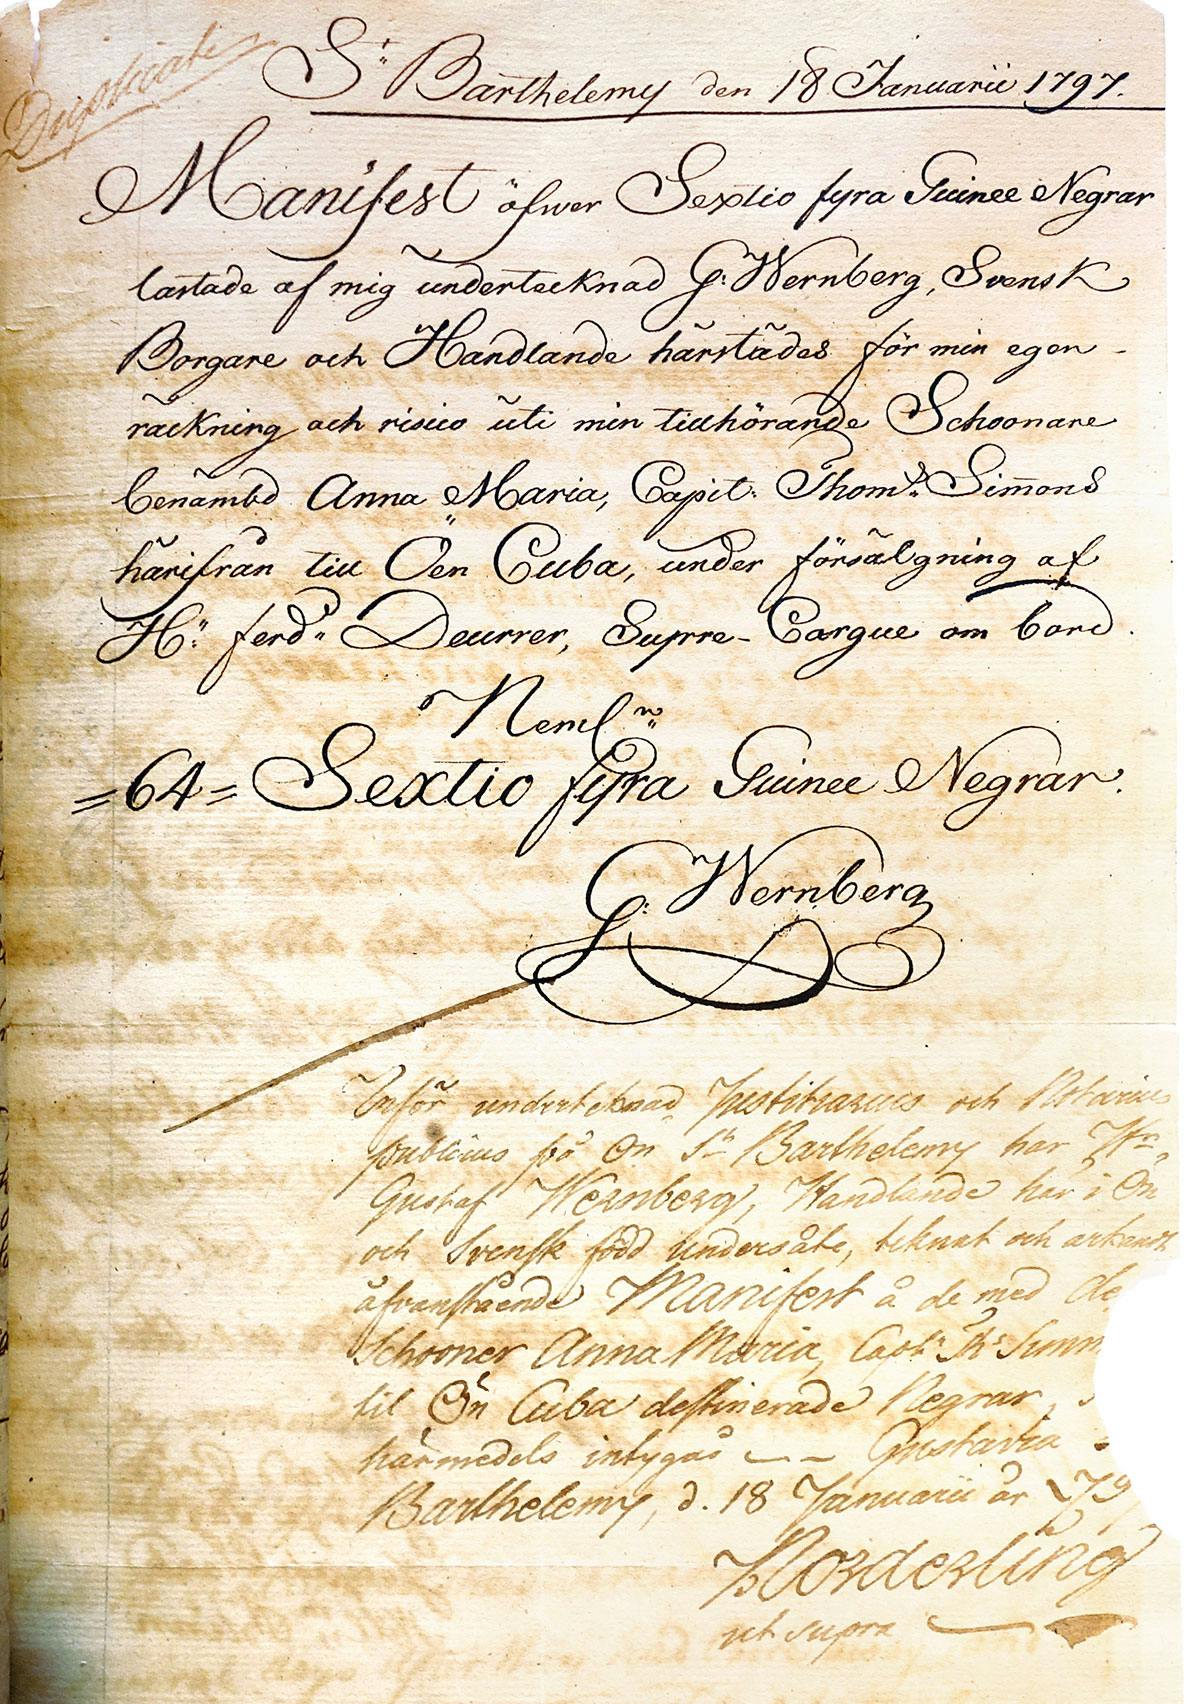 Duplicate
St Barthelemy den 18 Januarii 1797.
Manifest öfwer Sextio fyra Guinee Negrar
lastade af mig undertecknad G: Wernberg, Svensk
Borgare och Handlande härstädes för min egen
räckning och risico uti min tillhörande Schoonare
benämbd Anna Maria, Capit: Thoms: Simons
härifrån till Öen Cuba, under försälgning af
Hr: Ferd: Deurrer, Supre-Cargue om bord.
Neml:n
=64= Sextio fyra Guinee Negrar.
G: Wernberg
Inför underteknad Justitiarius och Notarius
publicus på Ön St Barthelemy har Hr,
Gustaf Wernberg, Handlande här i Ön
och Svensk född undersåte, teknat och erkändt
åfvanstående Manifest å de med de
Schooner Anna Maria, Capt: Ths Simm
til Ön Cuba destinerade Negrar, s
härmedels intygas -- Gustavia
Barthelemy, d. 18 Januarii år 179
Norderling
ut supra